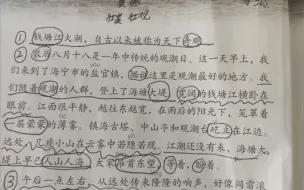 壮景 壮观
① 钱塘江大潮，自古以来被称为天下奇观。
② 农历八月十八是一年中传统的观潮日。这一天早上，我
们来到了海宁市的盐官镇，据说这里是观潮最好的地方。我
们随着观潮的人群，登上了海塘大堤。宽阔的钱塘江横卧在
眼前。江面很平静，越往东越宽，在雨后的阳光下，笼罩着
一层蒙蒙的薄雾。镇海古塔、中山亭和观潮台屹立在江边。
远处，几座小山在云雾中若隐若现。江潮还没有来，海塘大
堤上早已人山人海。大家昂首东望，等着，盼着。
③ 午后一点左右，从远处传来隆隆的响声，好像闷雷滚